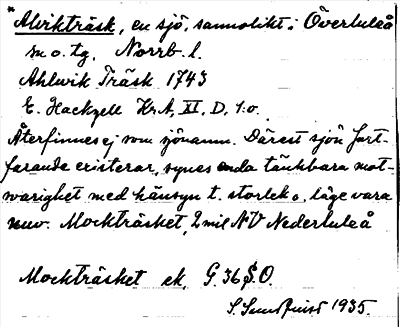 *Alvikträsk, en sjö, sannolikt i Överluleå
sn o. tg, Norrb. l.
Ahlwik Träsk 1743
E. Hackzell Kr.A, XI, D, 1:o.
Återfinnes ej som sjönamn. Därest sjön fort-
farande existerar, synes enda tänkbara mot-
svarighet med hänsyn t. storlek o. läge vara
nuv. Mockträsket, 2 mil NV Nederluleå
Mockträsket ek. G. 36 S.O.
S. Sundqvist 1935.